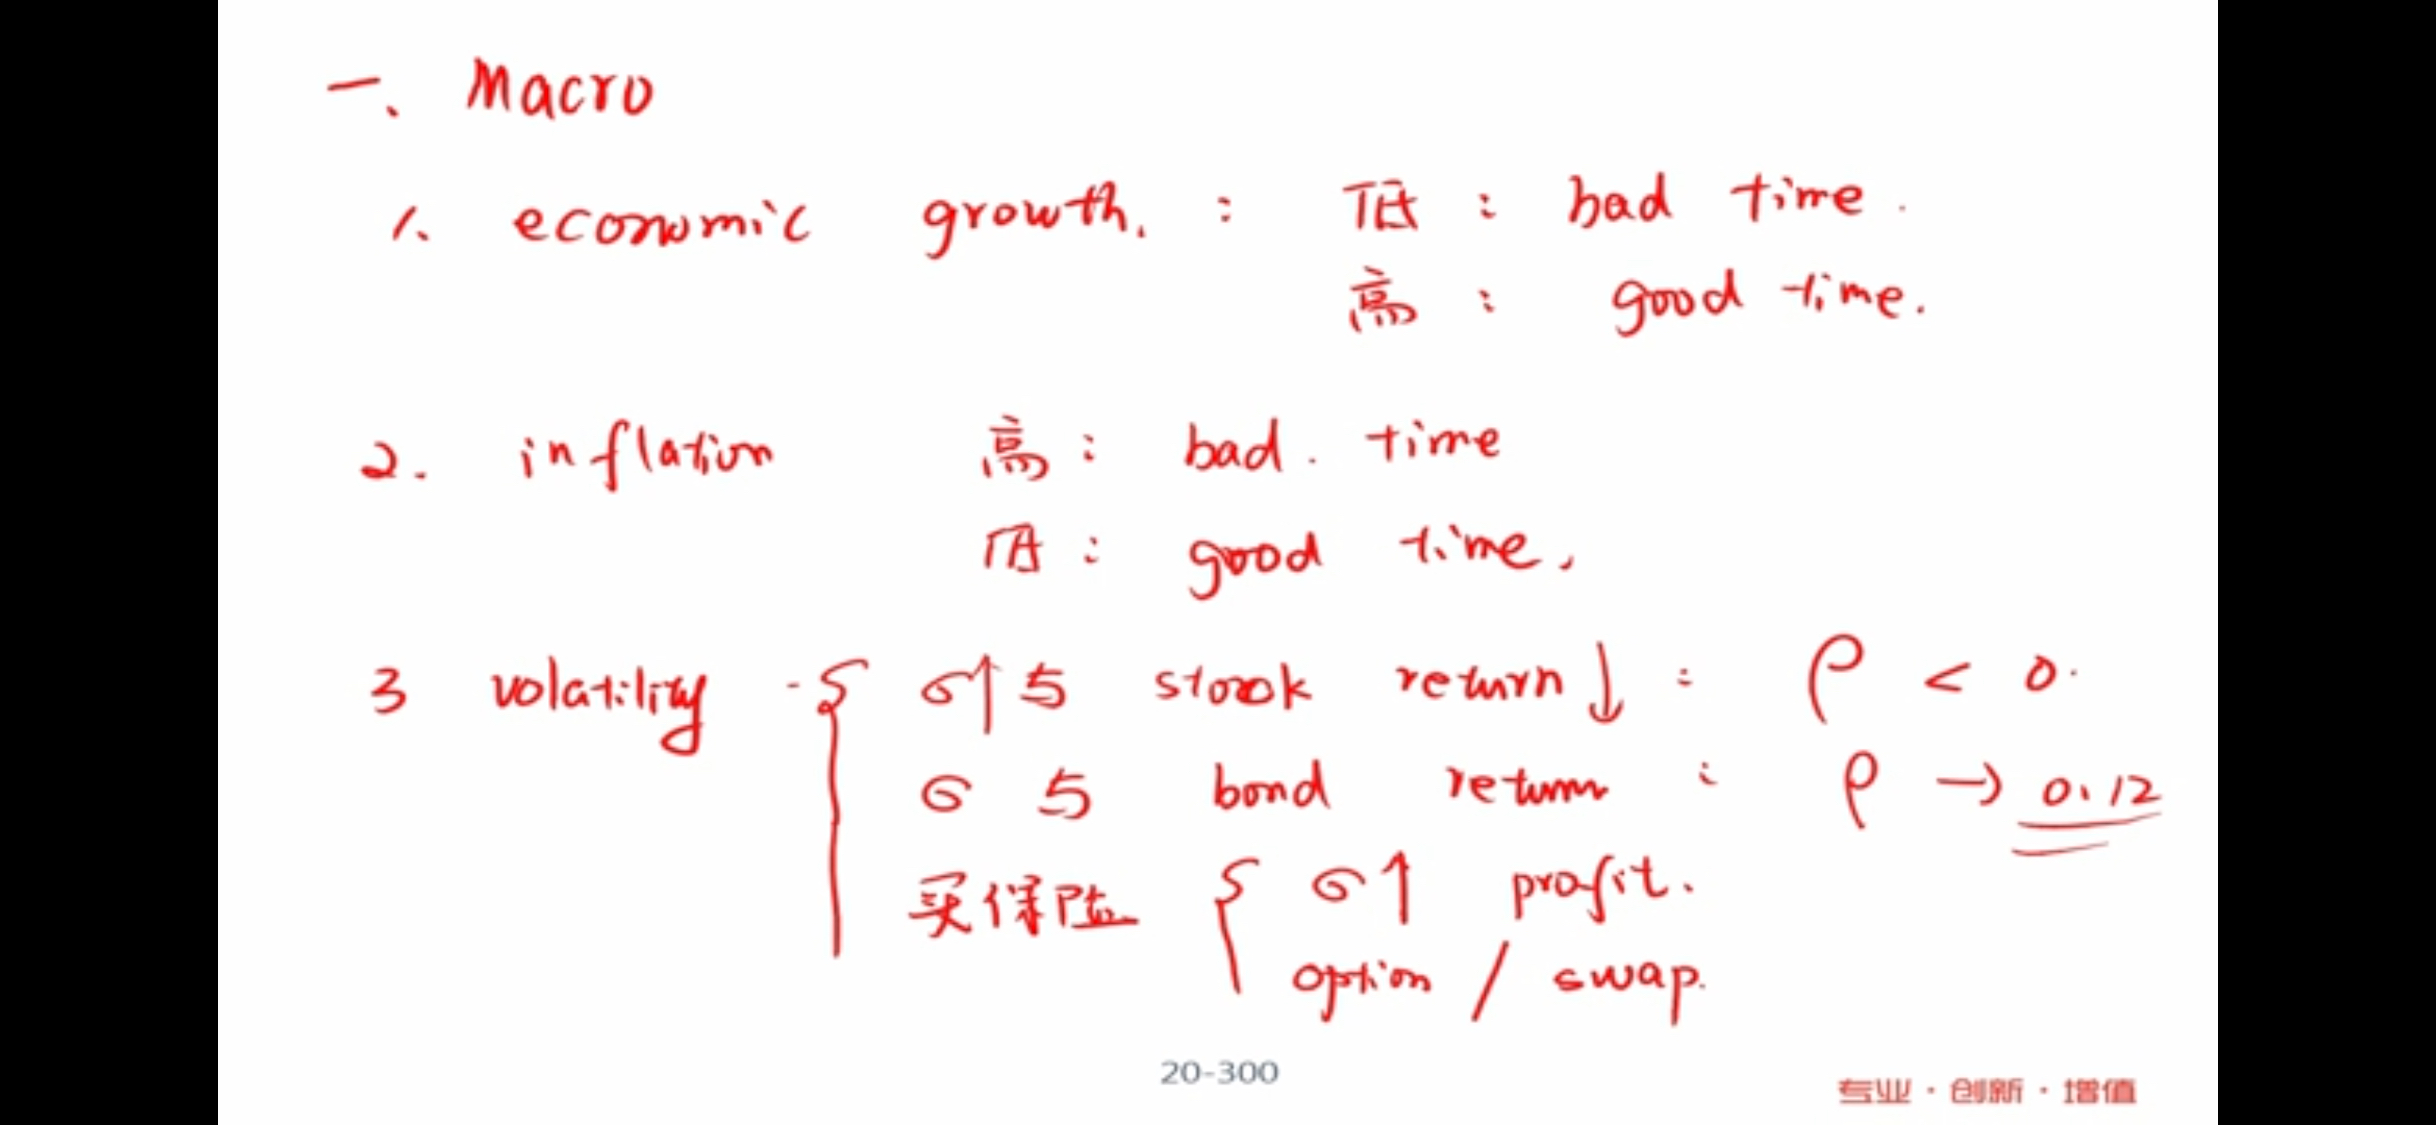 一、Macro
1. economic growth. : 低 : bad time.
高 : good time.
2. inflation 高 : bad. time
低 : good time.
3 volatility - { σ↑ 与 stock return ↓ : ρ < 0.
σ 与 bond return : ρ → 0.12
买保险 { σ↑ profit.
option / swap.
20-300
专业·创新·增值